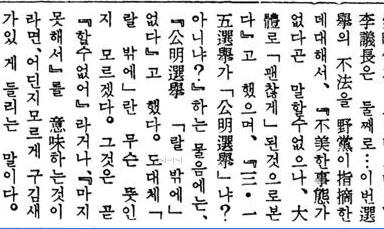 李議長은 둘째로…이번選
擧의 不法을 野黨이 指摘한
데대해서、『不美한事態가
없다곤 말할수없으나、大
體로「괜찮게」된것으로본
다』고 했으며、『三·一
五選擧가「公明選擧」냐?
아니냐?』하는 물음에는、
『公明選擧「랄 밖에」
없다』고 했다。도대체「
랄 밖에」란 무슨 뜻인
지 모르겠다。그것은 곧
『할수없어』라거나、『마지
못해서』를 意味하는것이
라면、어딘지모르게 구김새
가있게 들리는 말이다。